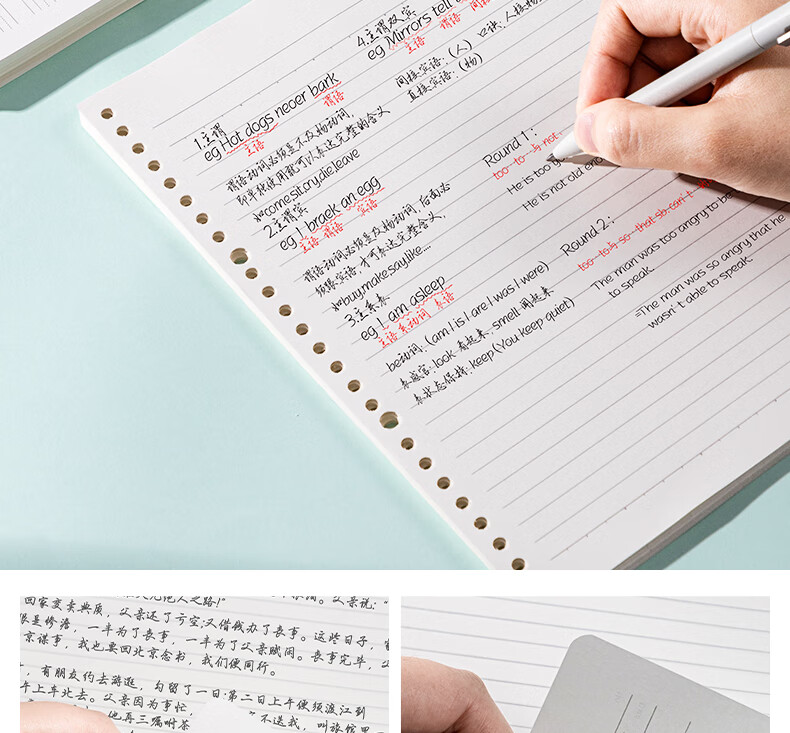 1.主谓
eg Hot dogs neoer bark
主语 谓语
谓语动词必须是不及物动词
即单独使用就可以表达完整的含义
如come sit cry die leave
2.主谓宾
eg I braek an egg
主语 谓语 宾语
谓语动词必须是及物动词,后面必
须跟宾语,才可表达完整含义,
如buy make say like....
3.主系表
eg I am asleep
主语 系动词 表语
be动词:(am I is I are I was I were)
表感官:look 看起来; smell 闻起来
表状态保持:keep (You keep quiet)
4.主谓双宾
eg Mirrors tell
主语 谓语 间接
间接宾语:(人) 口诀:人接物
直接宾语:(物)
Round 1:
too···to···与 not
He is too
He is not old eno
Round 2:
too···to与 so···that sb. can't
The man was too angry to be
to speak.
=The man was so angry that he
wasn't able to speak.
无绝人之路!" 父亲说:"
回家变卖典质,父亲还了亏空;又借钱办了丧事。这些日子,
惨淡,一半为了丧事,一半为了父亲赋闲。丧事完毕,父
京谋事,我也要回北京念书,我们便同行。
有朋友约去游逛,勾留了一日;第二日上午便须渡江到
午上车北去。父亲因为事忙,
他再三嘱咐茶 不送我,叫旅馆里